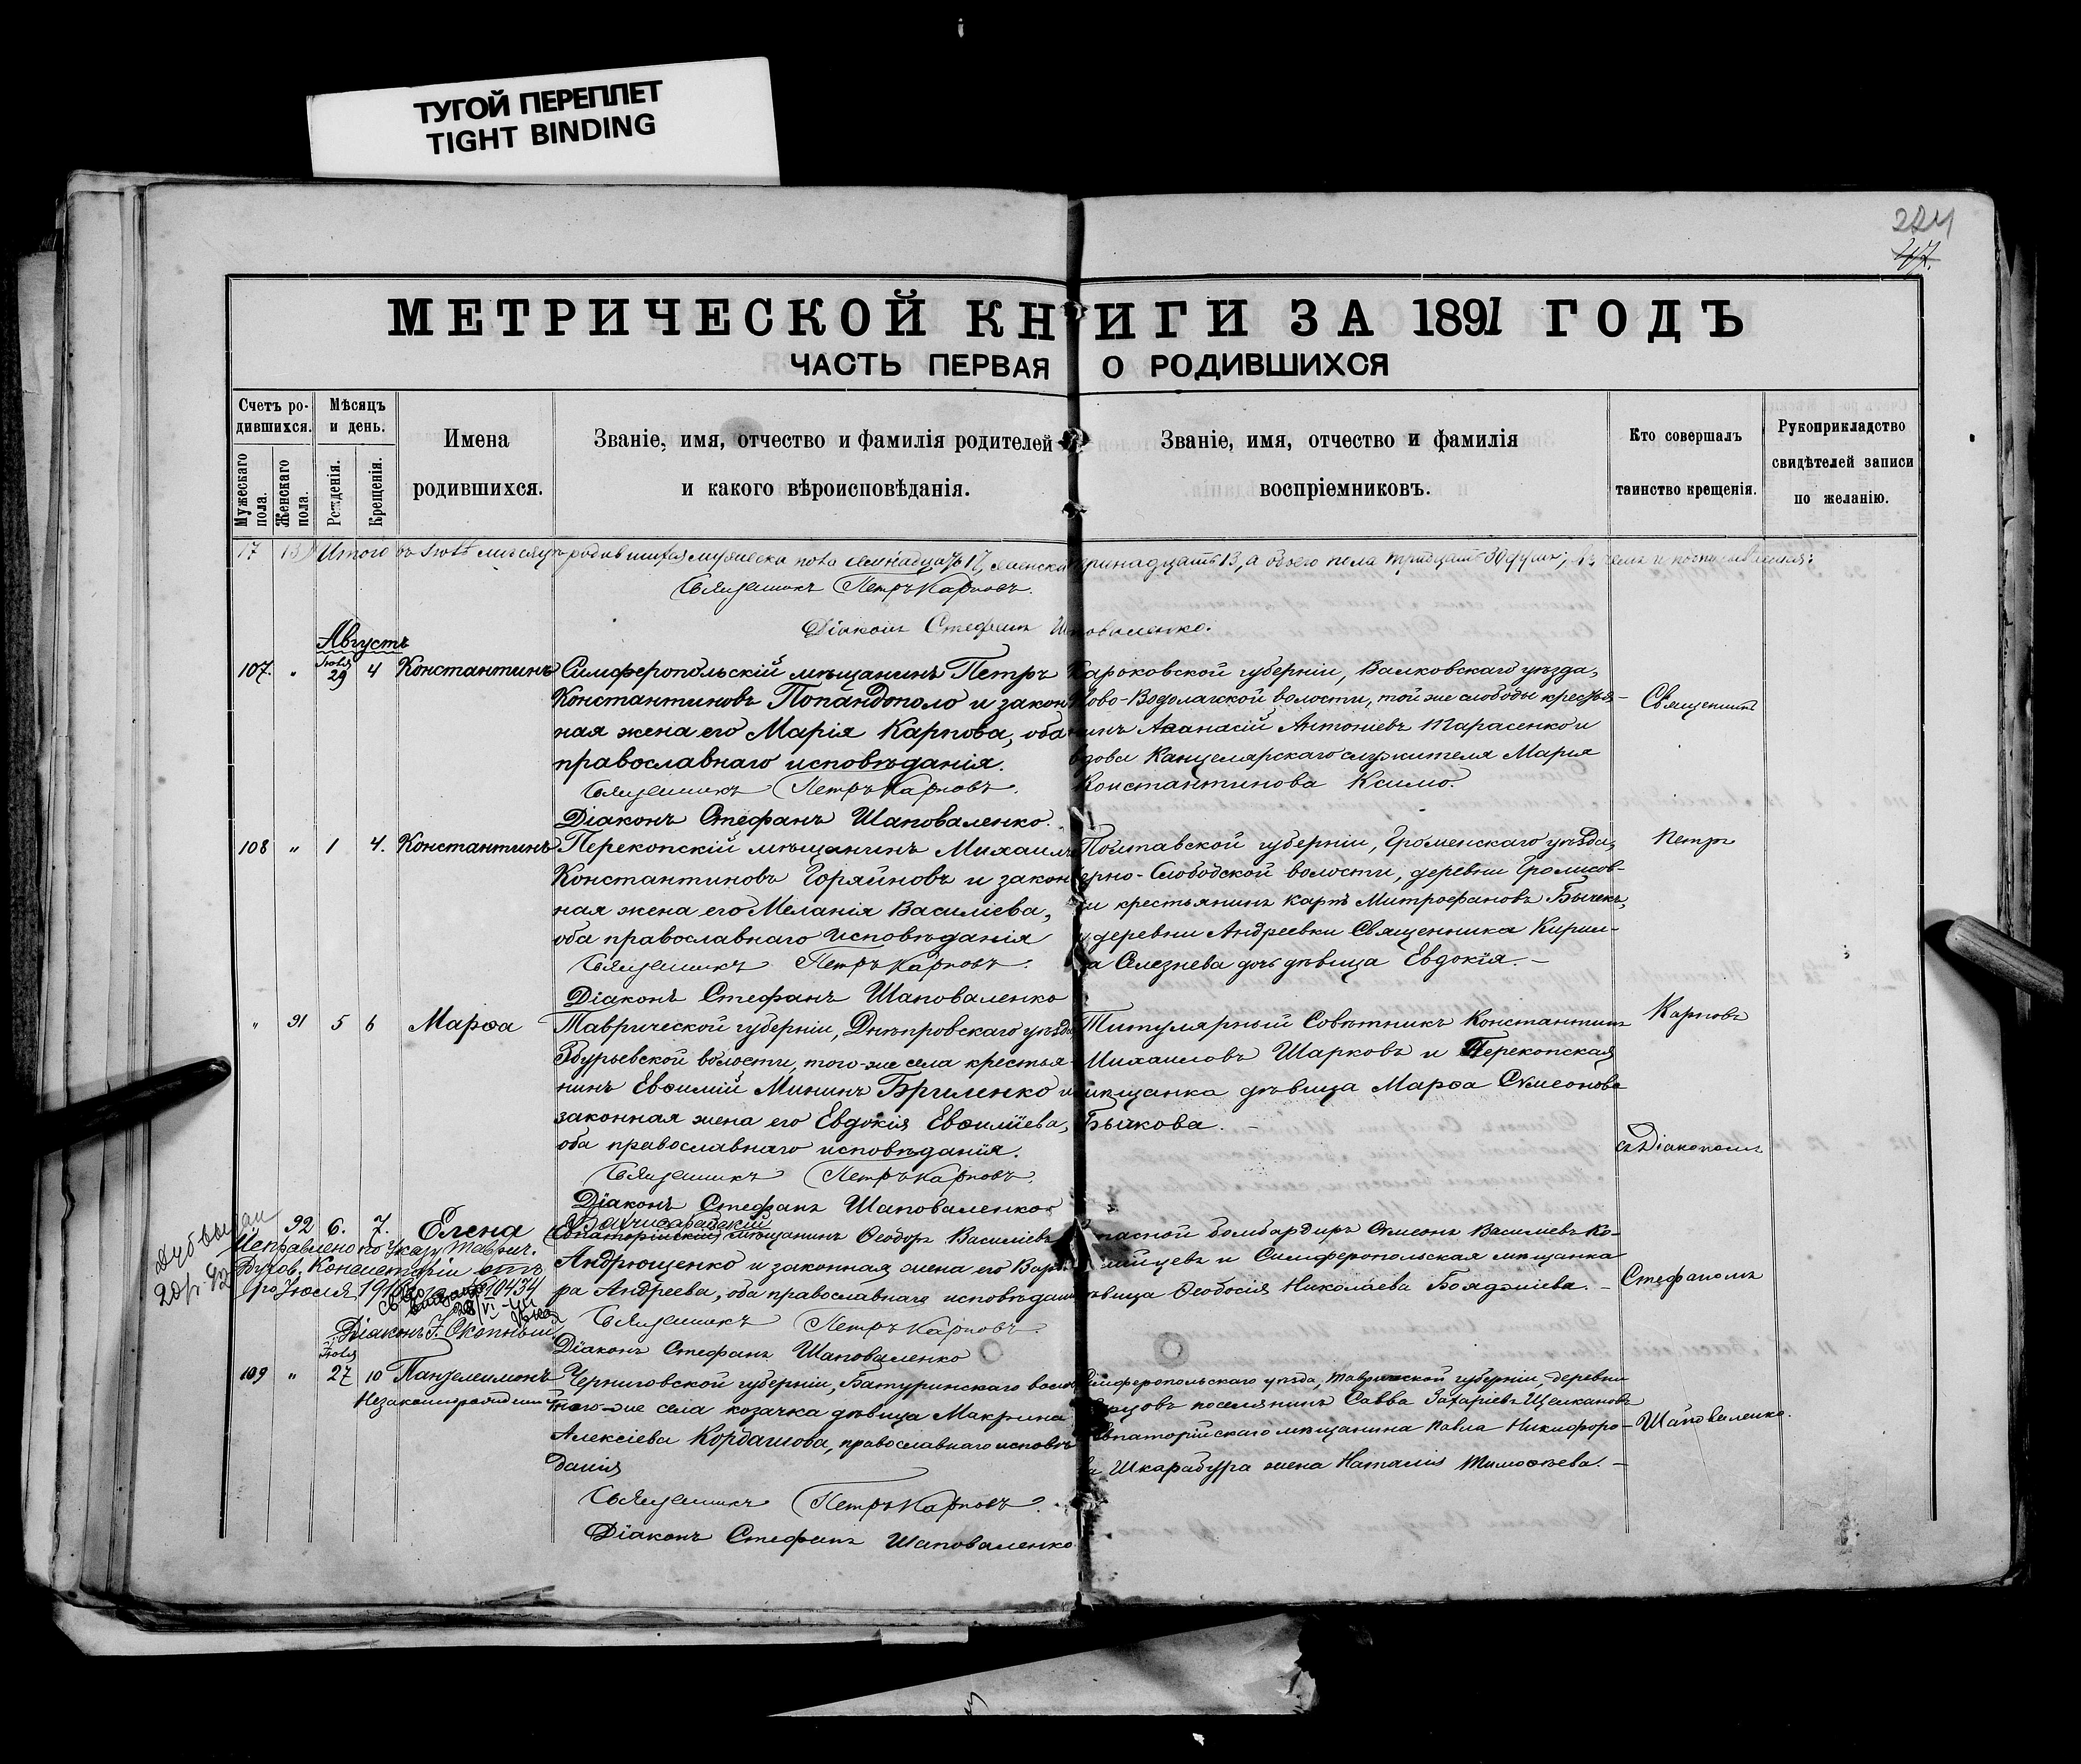 ТУГОЙ ПЕРЕПЛЕТ
TIGHT BINDING
224
47.
МЕТРИЧЕСКОЙ КНИГИ ЗА 1891 ГОДЪ
ЧАСТЬ ПЕРВАЯ О РОДИВШИХСЯ
Счетъ ро-
дившихся.
Мужескаго пола.
Женскаго пола.
Мѣсяцъ
и день.
Рожденія.
Крещенія.
Имена
родившихся.
Званіе, имя, отчество и фамилія родителей
и какого вѣроисповѣданія.
Званіе, имя, отчество и фамилія
воспріемниковъ.
Кто совершалъ
таинство крещенія.
Рукоприкладство
свидѣтелей записи
по желанію.
17 13 Итого въ Іюлѣ мѣсяцѣ родившихся мужеска пола семнадцать 17, женска тринадцать 13, а обоего пола тридцать 30 душъ;
Священникъ Петръ Карповъ.
Діаконъ Стефанъ Шаповаленко.
Августъ
107. " Іюля 29 4 Константинъ
Симферопольскій мѣщанинъ Петръ
Константиновъ Попандополо и закон
ная жена его Марія Карпова, оба
православнаго исповѣданія.
Священникъ Петръ Карповъ.
Діаконъ Стефанъ Шаповаленко.
Харьковской губерніи, Валковскаго уѣзда,
Ново-Водолагской волости, той же слободы крестья-
нинъ Аѳанасій Антоніевъ Тарасенко и
вдова Канцелярскаго служителя Марія
Константинова Ксимо.
Священникъ
108 " 1 4. Константинъ
Перекопскій мѣщанинъ Михаилъ
Константиновъ Горяйновъ и закон
ная жена его Меланія Василіева,
оба православнаго исповѣданія
Священникъ Петръ Карповъ.
Діаконъ Стефанъ Шаповаленко
Полтавской губерніи, Роменскаго уѣзда,
-Слободской волости, деревни
крестьянинъ Карпъ Митрофановъ
деревни Андреевки Священника Кирил-
ла Селезнева дочь дѣвица Евдокія. -
Петръ
" 91 5 6 Марѳа
Таврической губерніи, Днѣпровскаго уѣзда,
Збурьевской волости, того-же села крестья-
нинъ Евѳимій Мининъ Бриленко и
законная жена его Евдокія Евѳиміева,
оба православнаго исповѣданія.
Священникъ Петръ Карповъ.
Діаконъ Стефанъ Шаповаленко
Титулярный Совѣтникъ Константинъ
Михаиловъ Шарковъ и Перекопская
мѣщанка дѣвица Марѳа Сѵмеонова
Быкова. -
Карповъ
съ Діакономъ
92 6. 7. Елена
Исправлено по Указу Таврич.
Духов. Консисторіи отъ
Іюля
Діаконъ І. Окопный
Бахчисарайскій
Евпаторійскій мѣщанинъ Ѳеодоръ Василіевъ
Андрющенко и законная жена его Варва
ра Андреева, оба православнаго исповѣданія
Священникъ Петръ Карповъ.
Діаконъ Стефанъ Шаповаленко
Запасной бомбардиръ Сѵмеонъ Василіевъ Ко-
и Симферопольская мѣщанка
дѣвица Ѳеодосія Николаева Бояджіева. -
Стефаномъ
109 " Іюля 27 10 Пантелеимонъ
Незаконнорожденный
Черниговской губерніи, Батуринскаго
того-же села козачка дѣвица Макрина
Алексіева Кордашова, православнаго исповѣ
данія
Священникъ Петръ Карповъ.
Діаконъ Стефанъ Шаповаленко
Симферопольскаго уѣзда, Таврической губерніи, деревни
поселянинъ Савва Захаріевъ Щелкановъ
Евпаторійскаго мѣщанина Павла Никифоро-
ва Шкарабура жена Наталія Тимоѳеева. -
Шаповаленко.